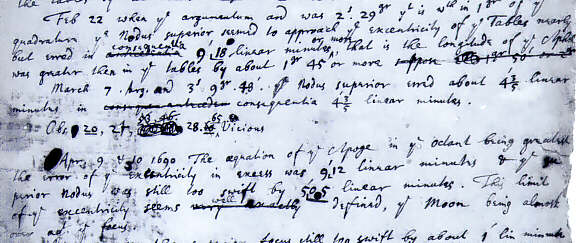 Feb 22 when yᵉ argumentum and was 2ˢ 29ᵍʳ yᵗ is wᵗʰ in 1ᵍʳ of yᵉ
quadrature yᵉ Nodus superior seemed to approach yᵉ excentricity of yᵉ Tables nearly
but erred in consequentia 9,18 linear minutes, that is the longitude of yᵉ Apoge
was greater then in yᵉ tables by about 1ᵍʳ 45' or more
March 7. Arg. and 3ˢ 9ᵍʳ. 48. yᵉ Nodus superior erred about 4⅗ linear
minutes in consequentia 4⅗ linear minutes.
Obs. 20, 27, 28. Vicious
Apr. 9 & 10 1690 The æquation of yᵉ Apoge in yᵉ Octant being greatest
the error of yᵉ Excentricity in excess was 9,12 linear minutes & yᵉ su
perior Nodus was still too swift by 50,5 linear minutes. This limit
of yᵉ excentricity seems well defined, yᵉ Moon being almost
over agᵗ yᵉ focus.
focus still too swift by about 1 lin minute